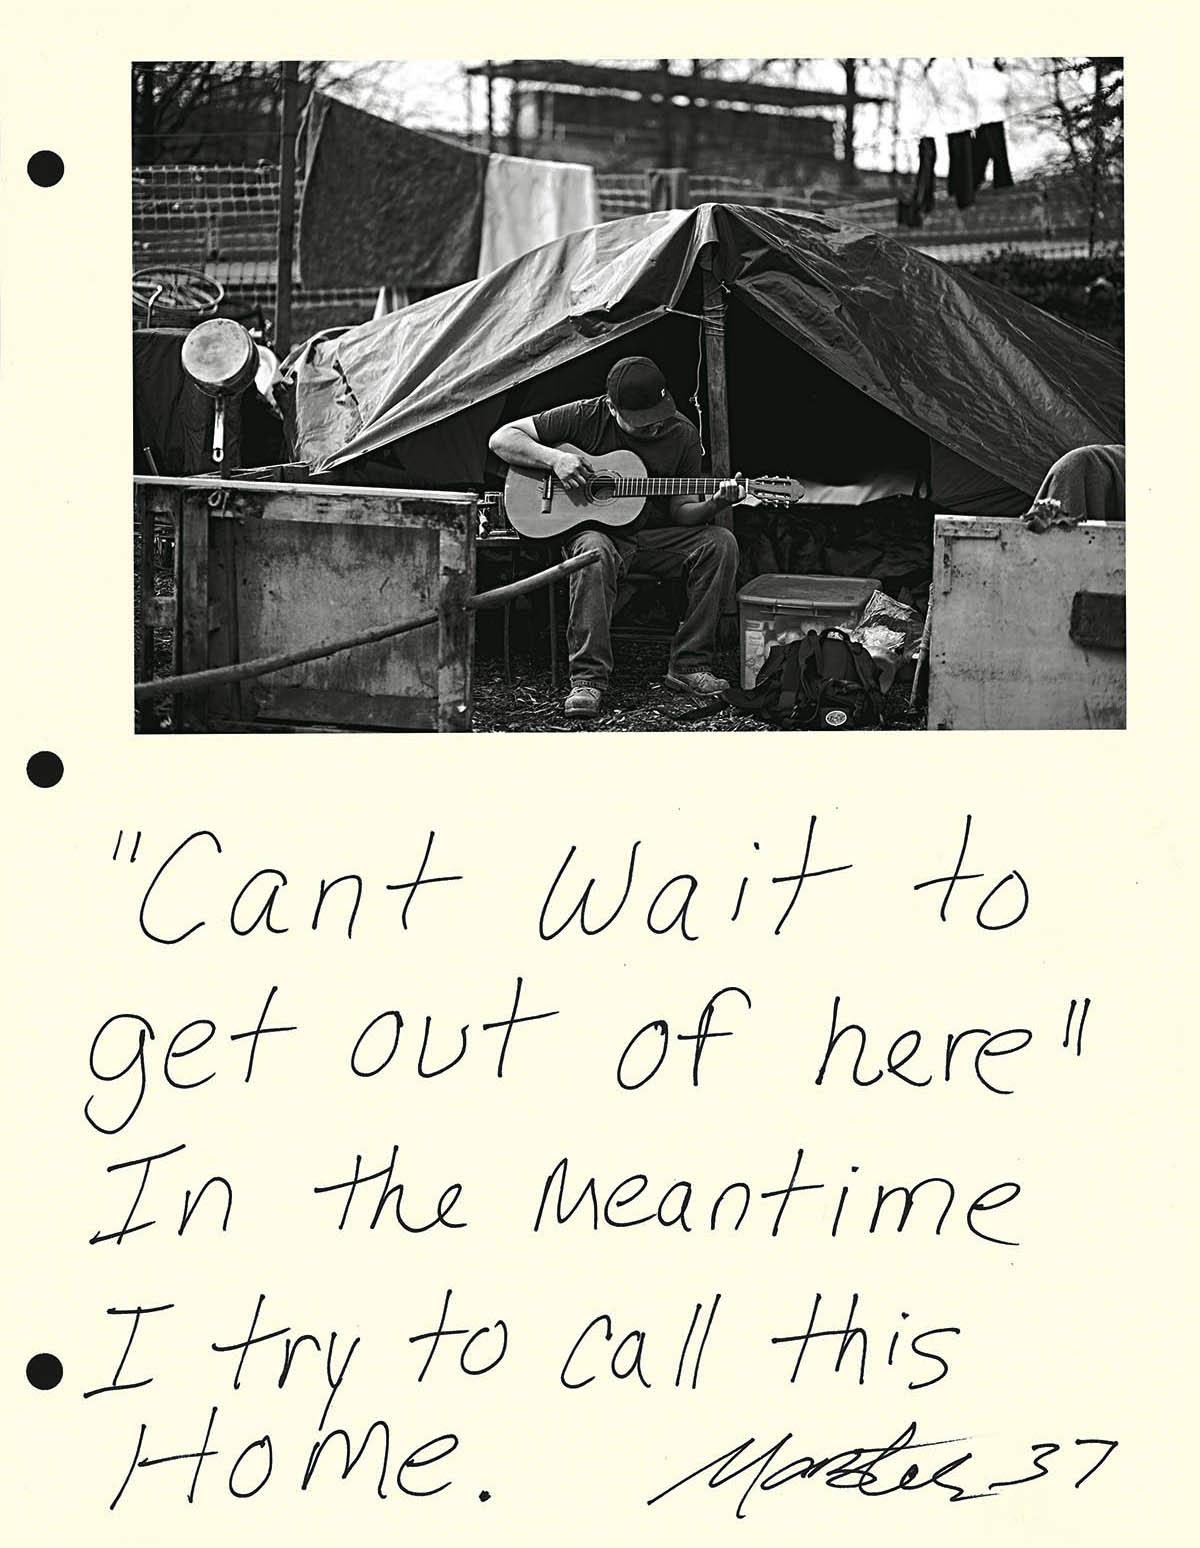 "Cant Wait to
get out of here"
In the Meantime
I try to call this
Home. 37